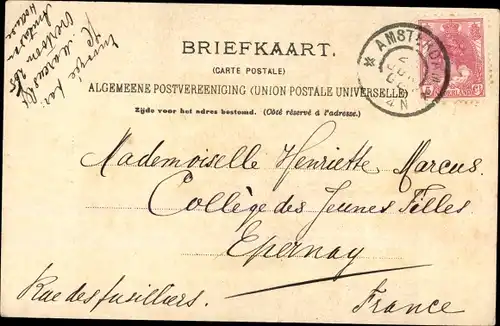 BRIEFKAART.
(CARTE POSTALE)
ALGEMEENE POSTVEREENIGING (UNION POSTALE UNIVERSELLE)
Zijde voor het adres bestemd. (Côté réservé à l'adresse.)
AMSTERDAM
Mademoiselle Henriette Marcus.
Collège des Jeunes Filles
Epernay
Rue des fusilliers.
France
Envoyé par